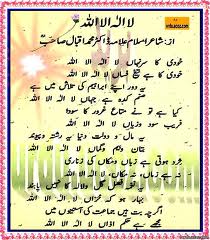 لا الٰہ الا اللہ
از: شاعر اسلام علامہ ڈاکٹر محمد اقبال صاحبؒ
خودی کا سر نہاں لا الٰہ الا اللہ
خودی ہے تیغ فساں لا الٰہ الا اللہ
یہ دور اپنے براہیم کی تلاش میں ہے
صنم کدہ ہے جہاں لا الٰہ الا اللہ
کیا ہے تو نے متاع غرور کا سودا
فریب سود و زیاں لا الٰہ الا اللہ
یہ مال و دولت دنیا یہ رشتہ و پیوند
بتان وہم و گماں لا الٰہ الا اللہ
خرد ہوئی ہے زمان و مکاں کی زناری
نہ ہے زماں نہ مکاں لا الٰہ الا اللہ
یہ نغمہ فصل گل و لالہ کا نہیں پابند
بہار ہو کہ خزاں لا الٰہ الا اللہ
اگرچہ بت ہیں جماعت کی آستینوں میں
مجھے ہے حکم اذاں لا الٰہ الا اللہ